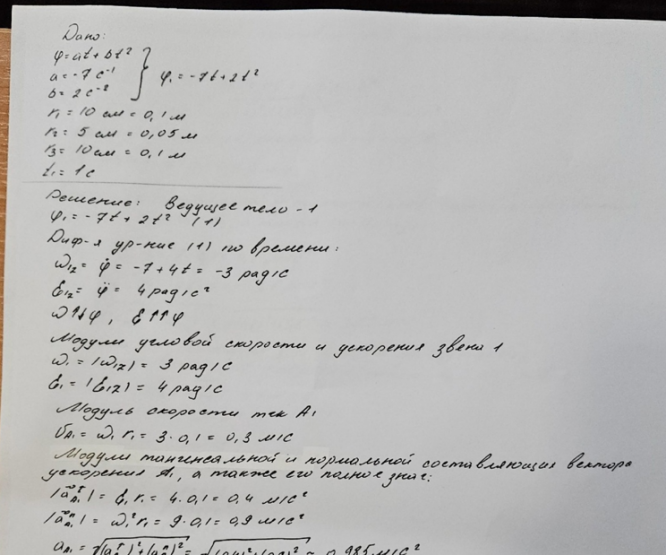 Дано:
φ = at + bt²
a = -7 c⁻¹ } φ₁ = -7t + 2t²
b = 2 c⁻²
r₁ = 10 см = 0,1 м
r₂ = 5 см = 0,05 м
r₃ = 10 см = 0,1 м
t₁ = 1 с
Решение: Ведущее тело - 1
φ₁ = -7t + 2t² (1)
Диф-я ур-ние (1) по времени:
ω₁z = φ̇ = -7 + 4t = -3 рад/с
ε₁z = φ̈ = 4 рад/с²
ω↑↓φ, ε↑↑φ
Модули угловой скорости и ускорения звена 1
ω₁ = |ω₁z| = 3 рад/с
ε₁ = |ε₁z| = 4 рад/с
Модуль скорости тчк A₁
υA₁ = ω₁ r₁ = 3 · 0,1 = 0,3 м/с
Модули тангенсальной и нормальной составляющих вектора
ускорения A₁, а также его полное знач:
|a⃗ᵗA₁| = ε₁ r₁ = 4 · 0,1 = 0,4 м/с²
|a⃗ⁿA₁| = ω₁² r₁ = 9 · 0,1 = 0,9 м/с²
aA₁ = 0,985 м/с²